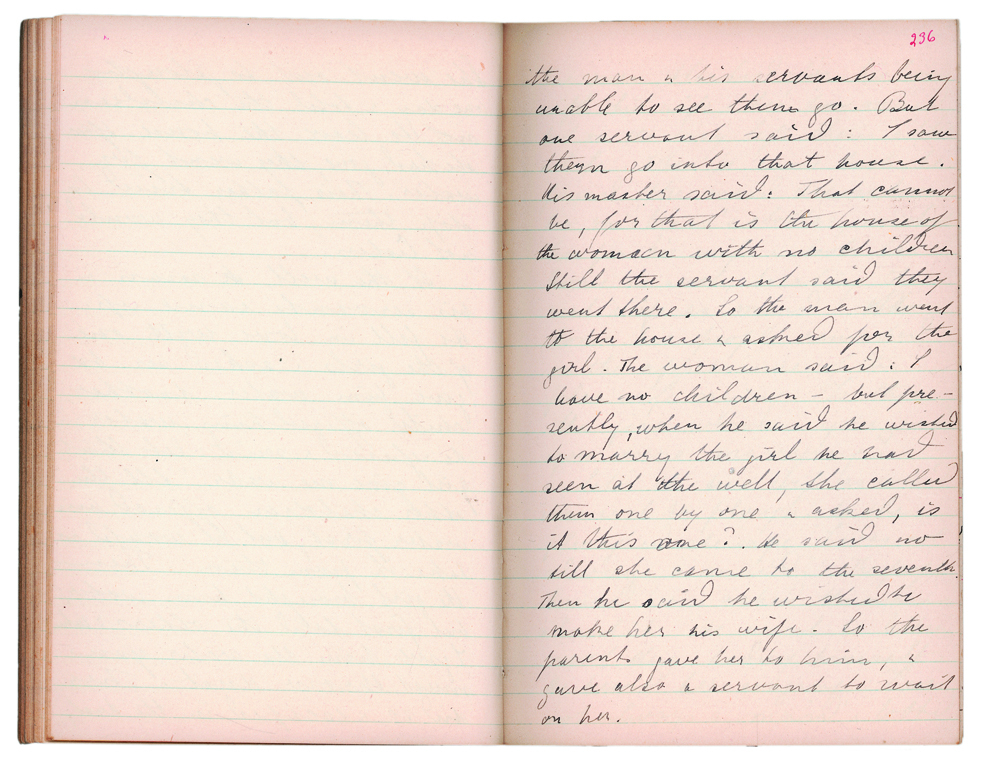 236
the man & his servants being
unable to see them go. But
one servant said: I saw
them go into that house.
His master said: That cannot
be, for that is the house of
the woman with no children
Still the servant said they
went there. So the man went
to the house & asked for the
girl. The woman said: I
have no children – but pre-
sently, when he said he wished
to marry the girl he had
seen at the well, she called
them one by one & asked, is
it this one?. He said no
till she came to the seventh.
Then he said he wished to
make her his wife. So the
parents gave her to him, &
gave also a servant to wait
on her.